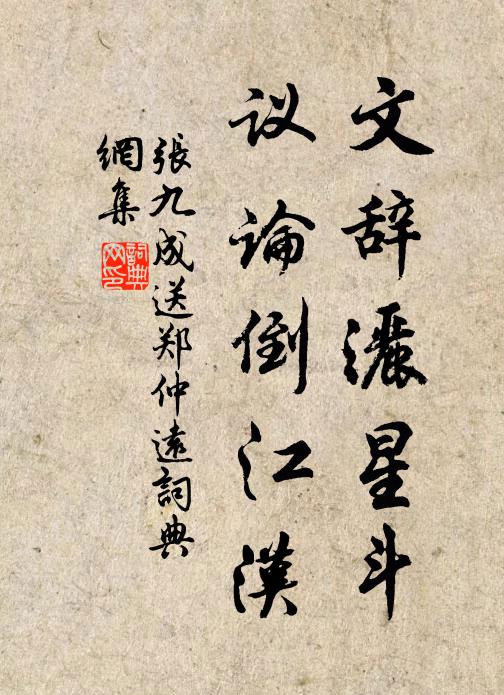 文辞灑星斗
议论倒江漢
張九成送郑仲遠詞典
網集
詞典
网印